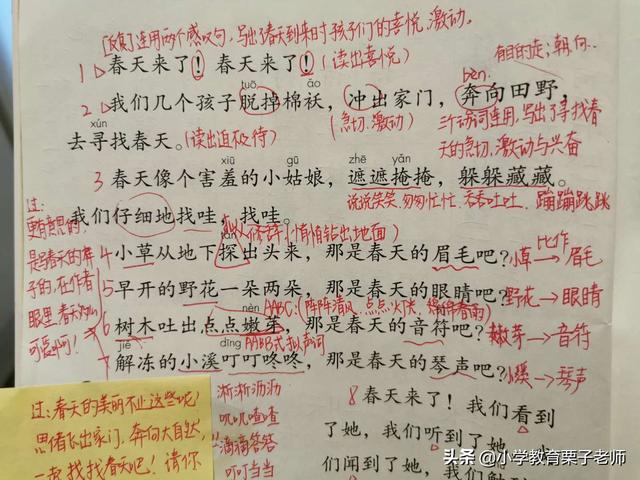 [反复]连用两个感叹句,写出了春天到来时孩子们的喜悦、激动。
1 春天来了! 春天来了! (读出喜悦)
有目的走;朝,向..
tuō ǎo bèn
2 我们几个孩子脱掉棉袄,冲出家门,奔向田野,
(急切、激动)
三个动词连用,写出了寻找春天的急切、激动与兴奋
xún
去寻找春天。(读出迫不及待)
xiū gū zhē yǎn
3 春天像个害羞的小姑娘,遮遮掩掩,躲躲藏藏。
说说笑笑、匆匆忙忙、吞吞吐吐、蹦蹦跳跳
我们仔细地找哇,找哇。
过:
更有意思的
是
子的,在作者
眼里,春天
可爱
(悄悄钻出地面)
4 小草从地下探出头来,那是春天的眉毛吧?
小草→眉毛
比作
5 早开的野花一朵两朵,那是春天的眼睛吧?
野花→眼睛
nèn
AABC:(阵阵清风、点点灯光
6 树木吐出点点嫩芽,那是春天的音符吧?
嫩芽→音符
jiě dīng
AABB式拟声词
7 解冻的小溪叮叮咚咚,那是春天的琴声吧?
小溪→琴声
过:春天的美丽不止这些呢!
冲出家门,奔向大自然,
一起找找春天吧!请你
淅淅沥沥
叽叽喳喳
滴滴答答
叮叮当当
8 春天来了!我们看到
了她,我们听到了她,我
们闻到了她,我们触到
头条 @小学教育栗子老师